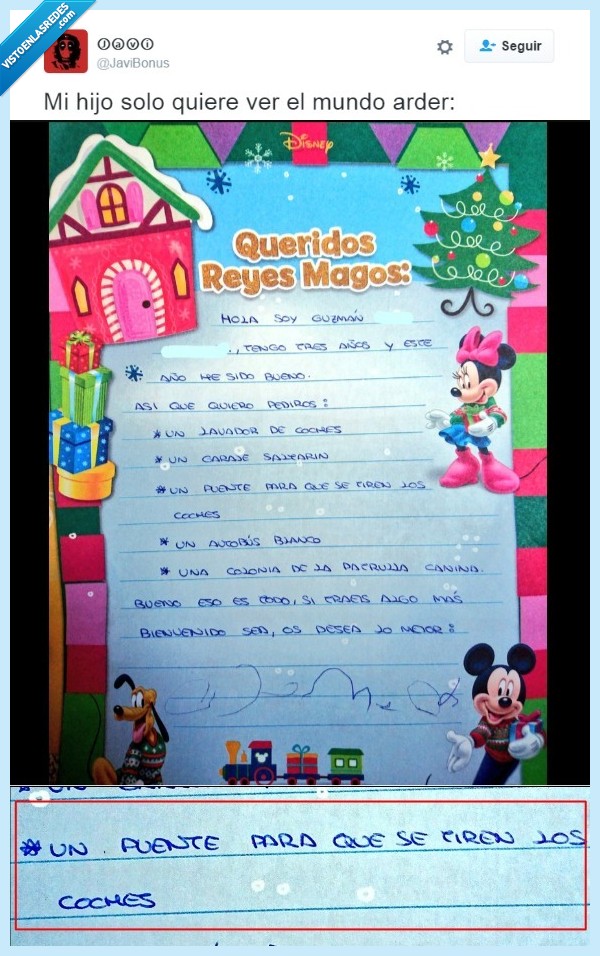 VISTOENLASREDES
.com
Javi
@JaviBonus
Seguir
Mi hijo solo quiere ver el mundo arder:
Disney
Queridos
Reyes Magos:
HOLA SOY GUZMÁN
, TENGO TRES AÑOS Y ESTE
* AÑO HE SIDO BUENO.
ASI QUE QUIERO PEDIROS:
* UN LAVADOR DE COCHES
* UN GARAJE SALTARIN
* UN PUENTE PARA QUE SE TIREN LOS
COCHES
* UN AUTOBÚS BLANCO
* UNA COLONIA DE LA PATRULLA CANINA.
BUENO ESO ES TODO, SI TRAEIS ALGO MAS
BIENVENIDO SEA, OS DESEA LO MEJOR:
* UN PUENTE PARA QUE SE TIREN LOS
COCHES